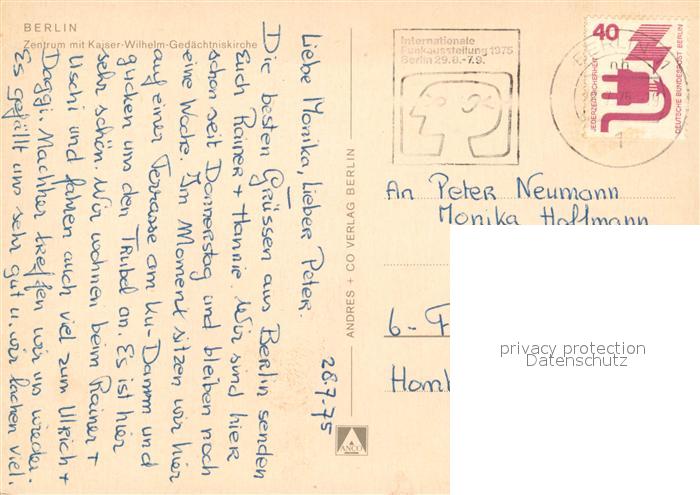 BERLIN
Zentrum mit Kaiser-Wilhelm-Gedächtniskirche
28.7.75
Liebe Monika, Lieber Peter.
Die besten Grüssen aus Berlin senden
Euch Rainer + Hannie. Wir sind hier
schon seit Donnerstag und bleiben noch
eine Woche. Im Moment sitzen wir hier
auf einer Terrasse am Ku-Damm und
gucken uns den Trubel an. Es ist hier
sehr schön. Wir wohnen beim Rainer +
Uschi und fahren auch viel zum Ulrich +
Daggi. Nachher treffen wir uns wieder.
Es gefällt uns sehr gut u. wir lachen viel.
ANDRES + CO VERLAG BERLIN
ANCO
Internationale
Funkausstellung 1975
Berlin 29.8.-7.9.
BERLIN
1
40
JEDERZEIT SICHERHEIT
DEUTSCHE BUNDESPOST BERLIN
An Peter Neumann
Monika Hoffmann
6 - F
Homb
privacy protection
Datenschutz